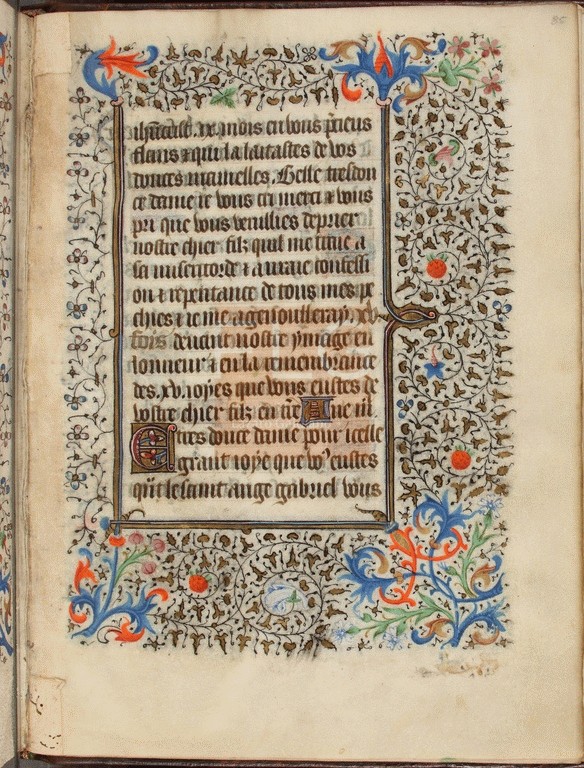 85
ihūcrist .ix. mois en vous p̄cieus
flans ⁊ qui l'alaitastes de vos
douces mamelles. Belle tresdou
ce dame ie vous cri merci ⁊ vous
pri que vous veuillies deprier
nostre chier filz quil me tiene a
sa misericorde ⁊ a vraie confessi
on ⁊ repentance de tous mes pe
chies ⁊ ie me agenoulleray .xv.
fois deuant nostre ymage en
lonneur ⁊ en la remembrance
des .xv. ioyes que vous eustes de
vostre chier filz en tr̄e Aue m̄.
Eues douce dame pour icelle
grant ioye que vo⁹ eustes
qūt le saint ange gabriel vous